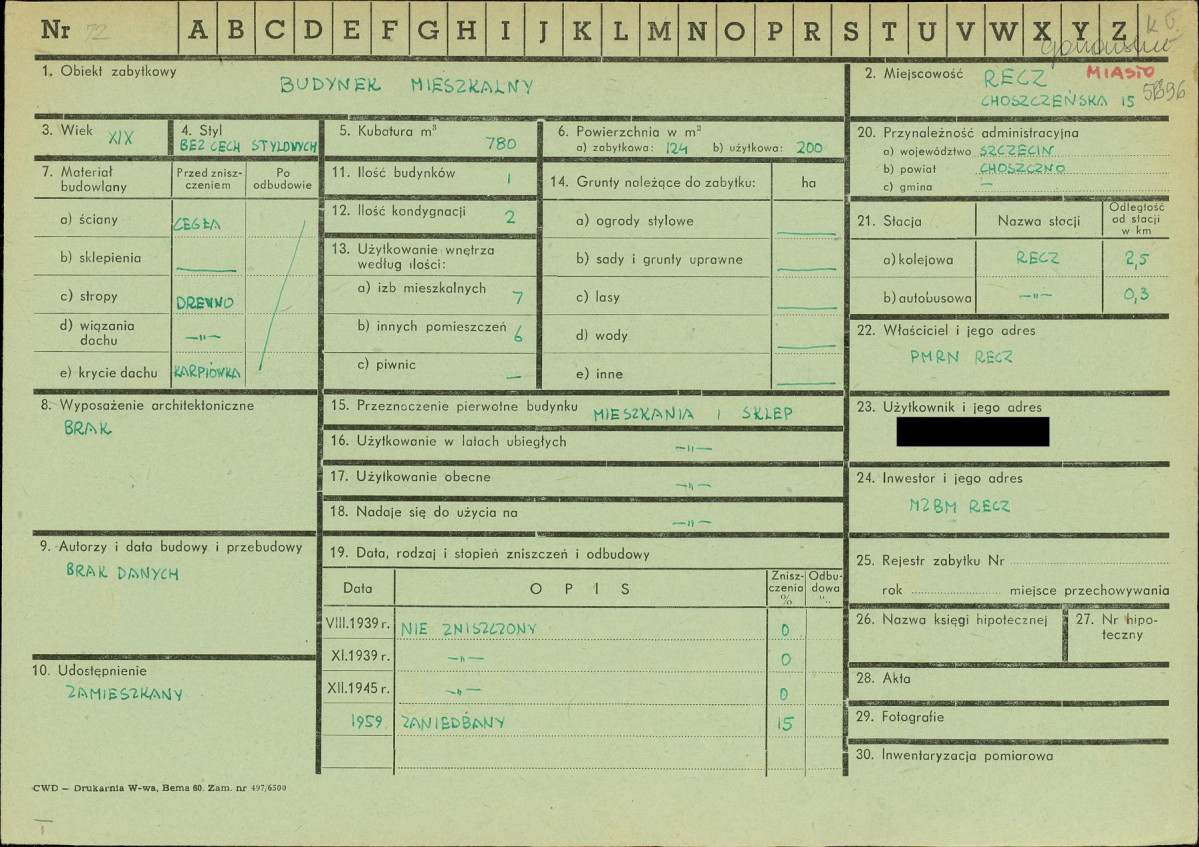 Nr 72 A B C D E F G H I J K L M N O P R S T U V W X Y Z
1. Obiekt zabytkowy
BUDYNEK MIESZKALNY
2. Miejscowość RECZ MIASTO
CHOSZCZEŃSKA 15
3. Wiek XIX
4. Styl
BEZ CECH STYLOWYCH
5. Kubatura m³
780
6. Powierzchnia w m²
a) zabytkowa: 124 b) użytkowa: 200
7. Materiał budowlany
Przed zniszczeniem
Po odbudowie
a) ściany CEGŁA
b) sklepienia —
c) stropy DREWNO
d) wiązania dachu —"—
e) krycie dachu KARPIÓWKA
8. Wyposażenie architektoniczne
BRAK
9. Autorzy i data budowy i przebudowy
BRAK DANYCH
10. Udostępnienie
ZAMIESZKANY
11. Ilość budynków 1
12. Ilość kondygnacji 2
13. Użytkowanie wnętrza
według ilości:
a) izb mieszkalnych 7
b) innych pomieszczeń 6
c) piwnic —
14. Grunty należące do zabytku: ha
a) ogrody stylowe —
b) sady i grunty uprawne —
c) lasy —
d) wody —
e) inne —
15. Przeznaczenie pierwotne budynku MIESZKANIA I SKLEP
16. Użytkowanie w latach ubiegłych —"—
17. Użytkowanie obecne —"—
18. Nadaje się do użycia na —"—
19. Data, rodzaj i stopień zniszczeń i odbudowy
Data OPIS Zniszczenia % Odbudowa "
VIII.1939 r. NIE ZNISZCZONY 0
XI.1939 r. —"— 0
XII.1945 r. —"— 0
1959 ZANIEDBANY 15
20. Przynależność administracyjna
a) województwo SZCZECIN
b) powiat CHOSZCZNO
c) gmina —
21. Stacja Nazwa stacji Odległość od stacji w km
a) kolejowa RECZ 2,5
b) autobusowa —"— 0,3
22. Właściciel i jego adres
PMRN RECZ
23. Użytkownik i jego adres
24. Inwestor i jego adres
MZBM RECZ
25. Rejestr zabytku Nr
rok miejsce przechowywania
26. Nazwa księgi hipotecznej
27. Nr hipoteczny
28. Akta
29. Fotografie
30. Inwentaryzacja pomiarowa
CWD — Drukarnia W-wa, Bema 60. Zam. nr 497/6500